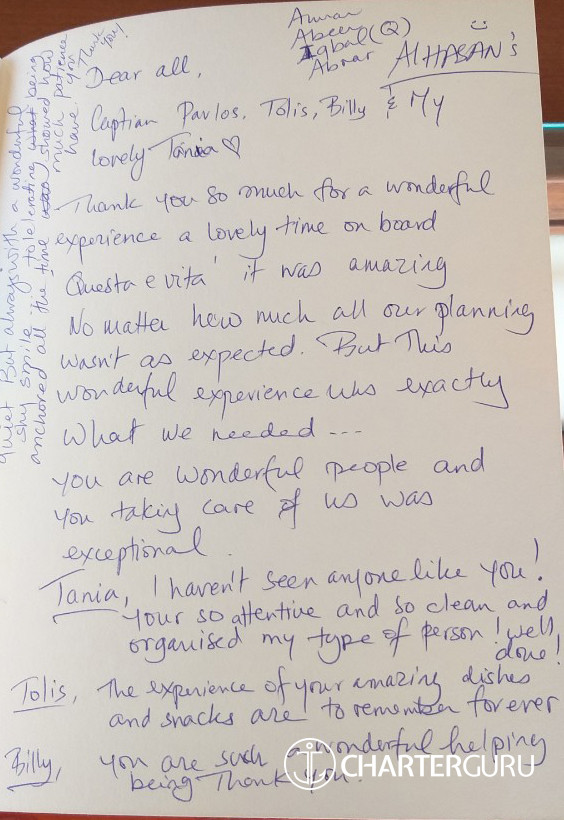 Amran
Abeer
Iqbal (Q)
Abrar
AlHASAN's
Dear all,
Captian Pavlos, Tolis, Billy & My
lovely Tania ♡
Thank you so much for a wonderful
experience a lovely time on board
Questa e vita' it was amazing
No matter how much all our planning
wasn't as expected. But This
wonderful experience was exactly
what we needed ---
you are wonderful people and
you taking care of us was
exceptional.
Tania, I haven't seen anyone like you!
your so attentive and so clean and
organised my type of person! well
done!
Tolis, The experience of your amazing dishes
and snacks are to remember forever
Billy, you are such a wonderful helping
being Thank you.
quiet But always with a wonderful
shy smile, tolelerating what being
anchored all the time showed how
much patience
you have.
Thank
You!
CHARTERGURU